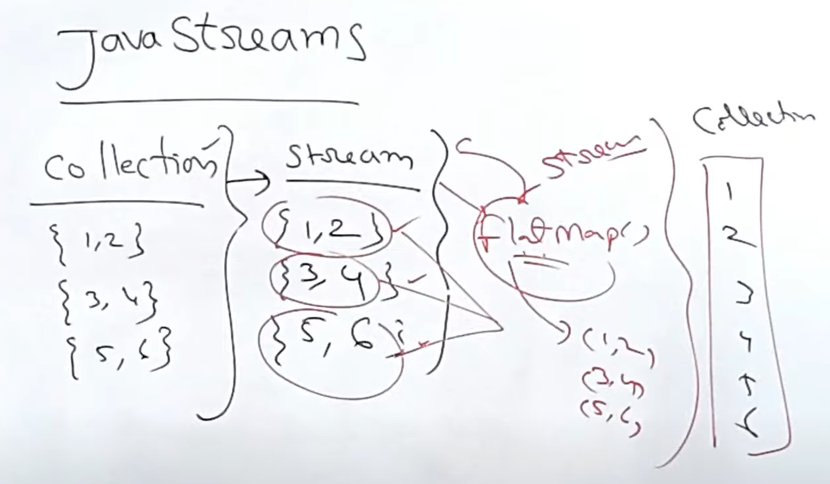 Java Streams
Collection
{ 1,2 }
{ 3, 4 }
{ 5, 6 }
Stream
{ 1,2 }
{ 3, 4 }
{ 5, 6 }
Stream
flatMap()
(1,2)
(3,4)
(5,6)
Collection
1
2
3
4
5
6